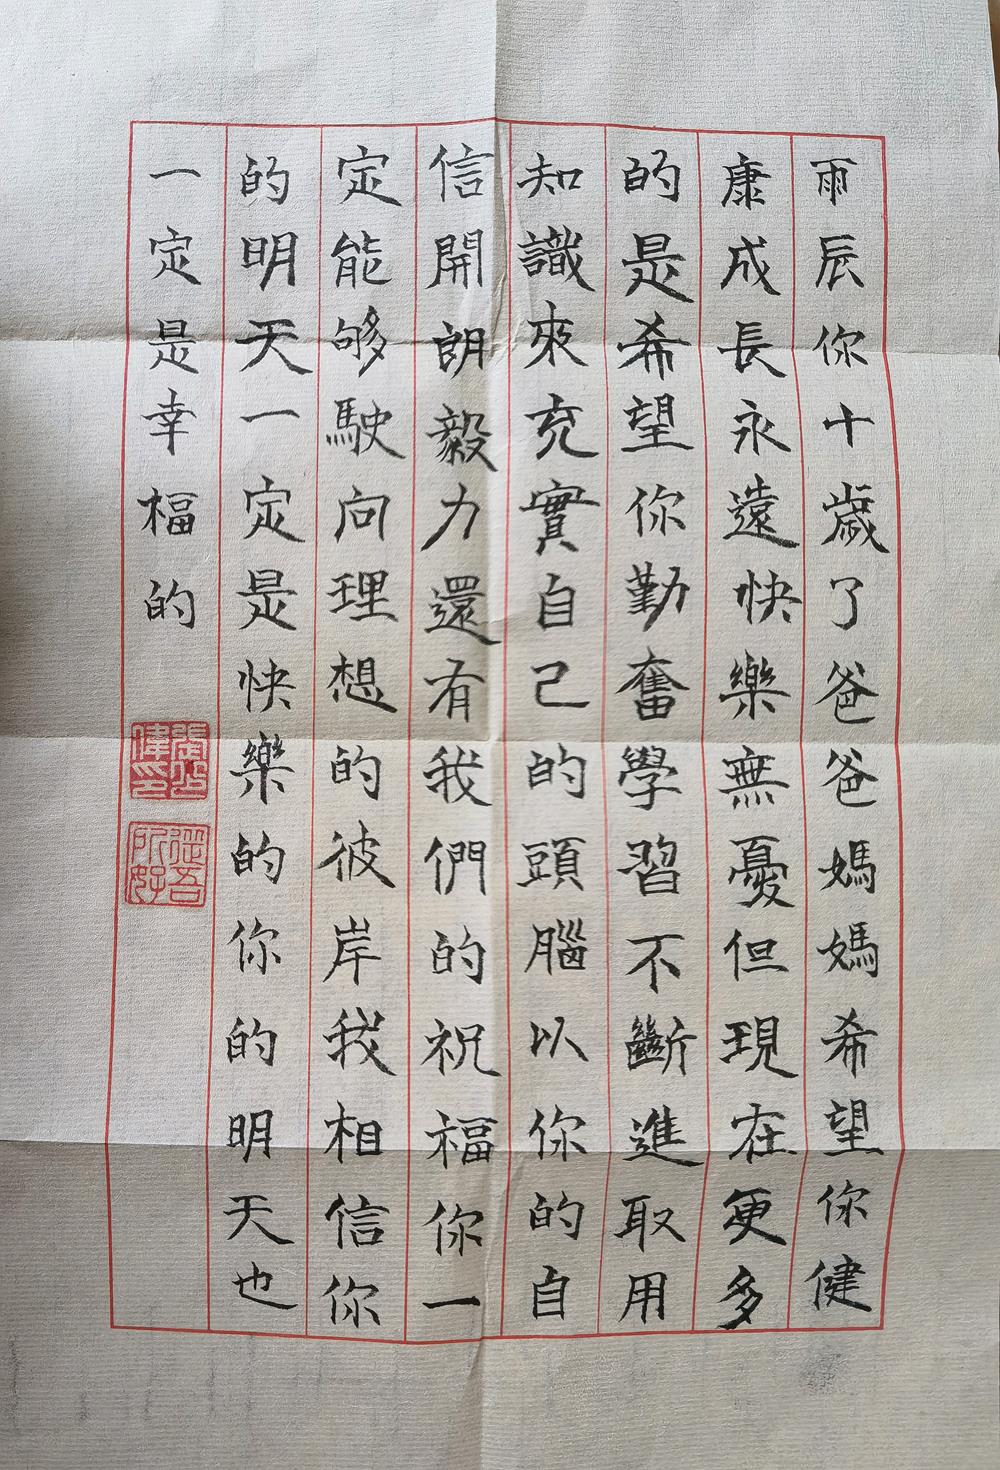 雨辰你十歲了爸爸媽媽希望你健
康成長永遠快樂無憂但現在更多
的是希望你勤奮學習不斷進取用
知識來充實自己的頭腦以你的自
信開朗毅力還有我們的祝福你一
定能够駛向理想的彼岸我相信你
的明天一定是快樂的你的明天也
一定是幸福的
從吾所好